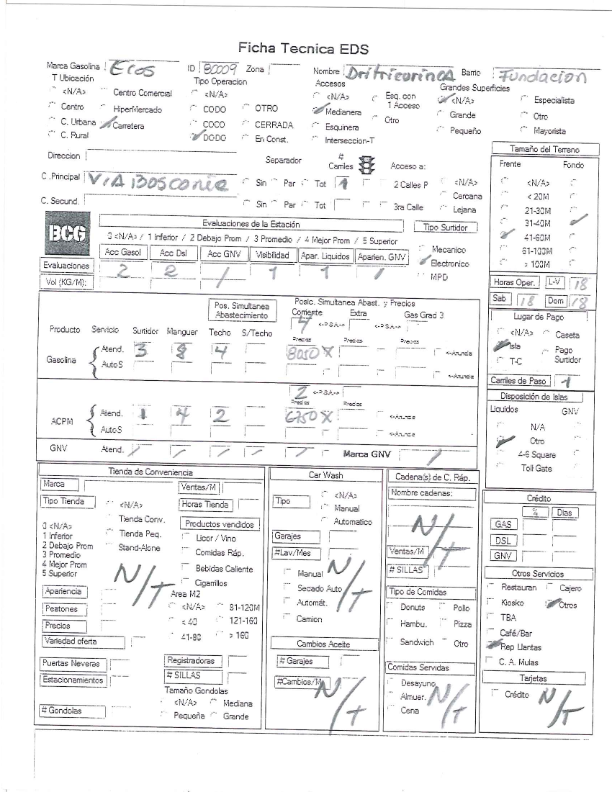 Ficha Tecnica EDS
Marca Gasolina Ecos ID 80009 Zona Nombre Barrio Fundacion
T Ubicación Tipo Operacion Accesos Grandes Superficies
<N/A> Centro Comercial <N/A> <N/A> Esq. con 1 Acceso <N/A> Especialista
Centro HiperMercado CODO OTRO Medianera Otro Grande Otro
C. Urbana Carretera COCO CERRADA Esquinera Pequeño Mayorista
C. Rural DODO En Const. Interseccion-T
Direccion Separador # Carriles Acceso a:
C .Principal VIA Bosconia Sin Par Tot 1 2 Calles P <N/A> Cercana
C. Secund. Sin Par Tot 3ra Calle Lejana
Tamaño del Terreno
Frente Fondo
<N/A>
< 20M
21-30M
31-40M
41-60M
61-100M
> 100M
BCG
Evaluaciones de la Estación Tipo Surtidor
0 <N/A> / 1 Inferior / 2 Debajo Prom / 3 Promedio / 4 Mejor Prom / 5 Superior
Acc Gasol Acc Dsl Acc GNV Visibilidad Apar. Liquidos Aparien. GNV
Evaluaciones 2 2 / 1 1 /
Vol (KG/M):
Mecanico
Electronico
MPD
Horas Oper. L-V 18
Sab 18 Dom 18
Pos. Simultanea Abastecimiento
Posic. Simultanea Abast. y Precios
Corriente Extra Gas Grad 3
Producto Servicio Surtidor Manguer Techo S/Techo
4 <-P.S.A->
Precios Precios Precios
Gasolina Atend. 3 8 4 8050 X <-Anuncia
AutoS <-Anuncia
2 <-P.S.A->
Precios Precios
ACPM Atend. 1 4 2 6750 X <-Anuncia
AutoS <-Anuncia
GNV Atend. / / / / Marca GNV /
Lugar de Pago
<N/A> Caseta
Isla Pago Surtidor
T-C
Carriles de Paso 1
Disposición de Islas
Liquidos GNV
N/A
Otro
4-6 Square
Toll Gate
Tienda de Conveniencia
Marca Ventas/M
Tipo Tienda <N/A> Horas Tienda
0 <N/A> Tienda Conv. Productos vendidos
1 Inferior Tienda Peq. Licor / Vino
2 Debajo Prom Stand-Alone Comidas Ráp.
3 Promedio
4 Mejor Prom Bebidas Caliente
5 Superior N/T Cigarrillos
Apariencia Area M2
Peatones <N/A> 81-120M
Precios < 40 121-160
Variedad oferta 41-80 > 160
Puertas Neveras Registradoras
Estacionamientos # SILLAS
Tamaño Gondolas
# Gondolas <N/A> Mediana
Pequeña Grande
Car Wash
Tipo <N/A>
Manual
Automatico
Garajes
#Lav/Mes
Manual
Secado Auto
Automát.
Camion
N/T
Cambios Aceite
# Garajes
#Cambios/M N/T
Cadena(s) de C. Ráp.
Nombre cadenas:
N/T
Ventas/M
# SILLAS
Tipo de Comidas
Donuts Pollo
Hambu. Pizza
Sandwich Otro
Comidas Servidas
Desayuno
Almuer.
Cena
N/T
Crédito
% Dias
GAS
DSL
GNV
Otros Servicios
Restauran Cajero
Kiosko Otros
TBA
Café/Bar
Rep Llantas
C. A. Mulas
Tarjetas
Crédito N/T